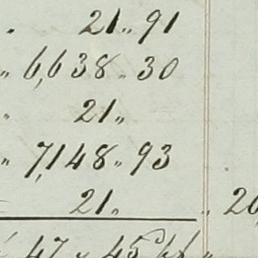 " 21 " 91
" 6,638 " 30
" 21 "
" 7,148 " 93
21 " " 20